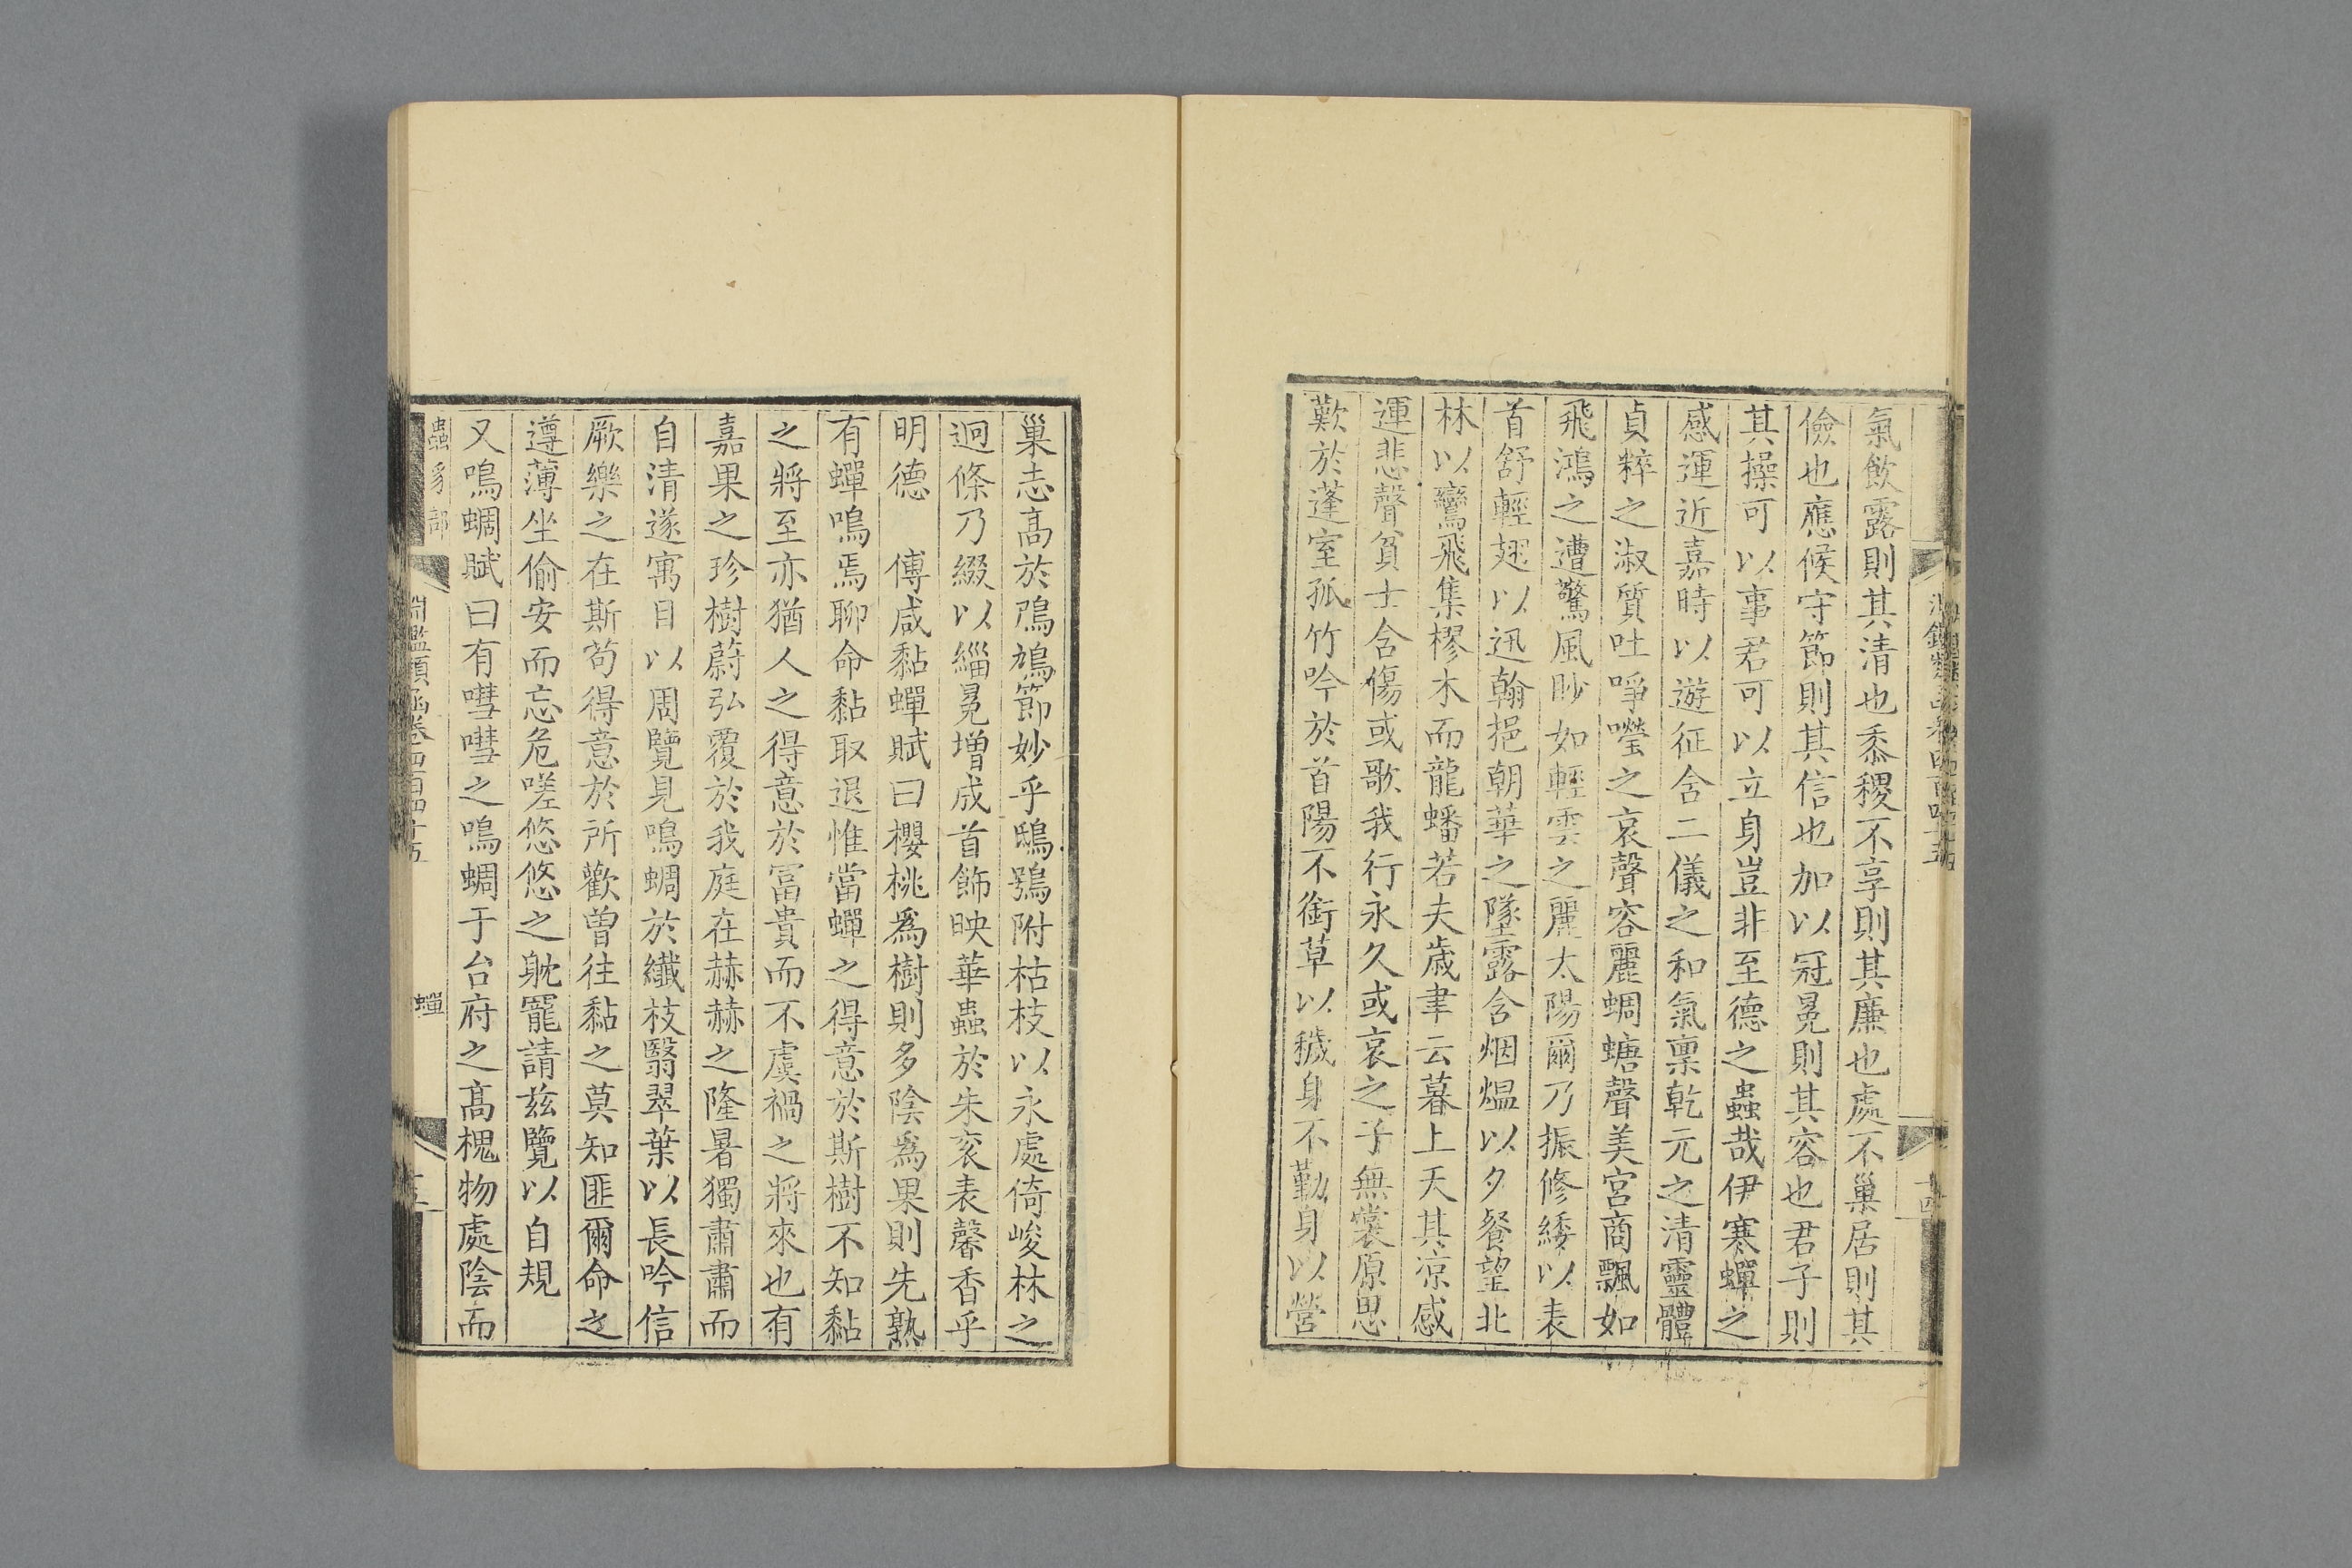 氣飲露則其清也黍稷不享則其廉也處不巢居則其
儉也應候守節則其信也加以冠冕則其容也君子則
其操可以事君可以立身豈非至德之蟲哉伊寒蟬之
感運近嘉時以遊征含二儀之和氣禀乾元之清靈體
貞粹之淑質吐啍㘇之哀聲容麗蜩螗聲美宮商飄如
飛鴻之遭驚風眇如輕雲之麗太陽爾乃振修緌以表
首舒輕翅以迅翰挹朝華之墜露含烟熅以夕餐望北
林以鸞飛集樛木而龍蟠若夫歲聿云暮上天其涼感
運悲聲貧士含傷或歌我行永久或哀之子無裳原思
歎於蓬室孤竹吟於首陽不銜草以穢身不勤身以營
巢志高於鳲鳩節妙乎鴟鴞附枯枝以永處倚峻林之
迥條乃綴以緇冕增成首飾映華蟲於朱衮表馨香乎
明德　傅咸黏蟬賦曰櫻桃爲樹則多陰爲果則先熟
有蟬鳴焉聊命黏取退惟當蟬之得意於斯樹不知黏
之將至亦猶人之得意於富貴而不虞禍之將來也有
嘉果之珍樹蔚弘覆於我庭在赫赫之隆暑獨肅肅而
自清遂寓目以周覽見鳴蜩於纖枝翳翠葉以長吟信
厥樂之在斯苟得意於所歡曾往黏之莫知匪爾命之
遵薄坐偷安而忘危嗟悠悠之躭寵請兹覽以自規
又鳴蜩賦曰有嘒嘒之鳴蜩于台府之高槐物處陰而
蟲豸部
淵鑑類函卷四百四十五
蟬
十五
十四